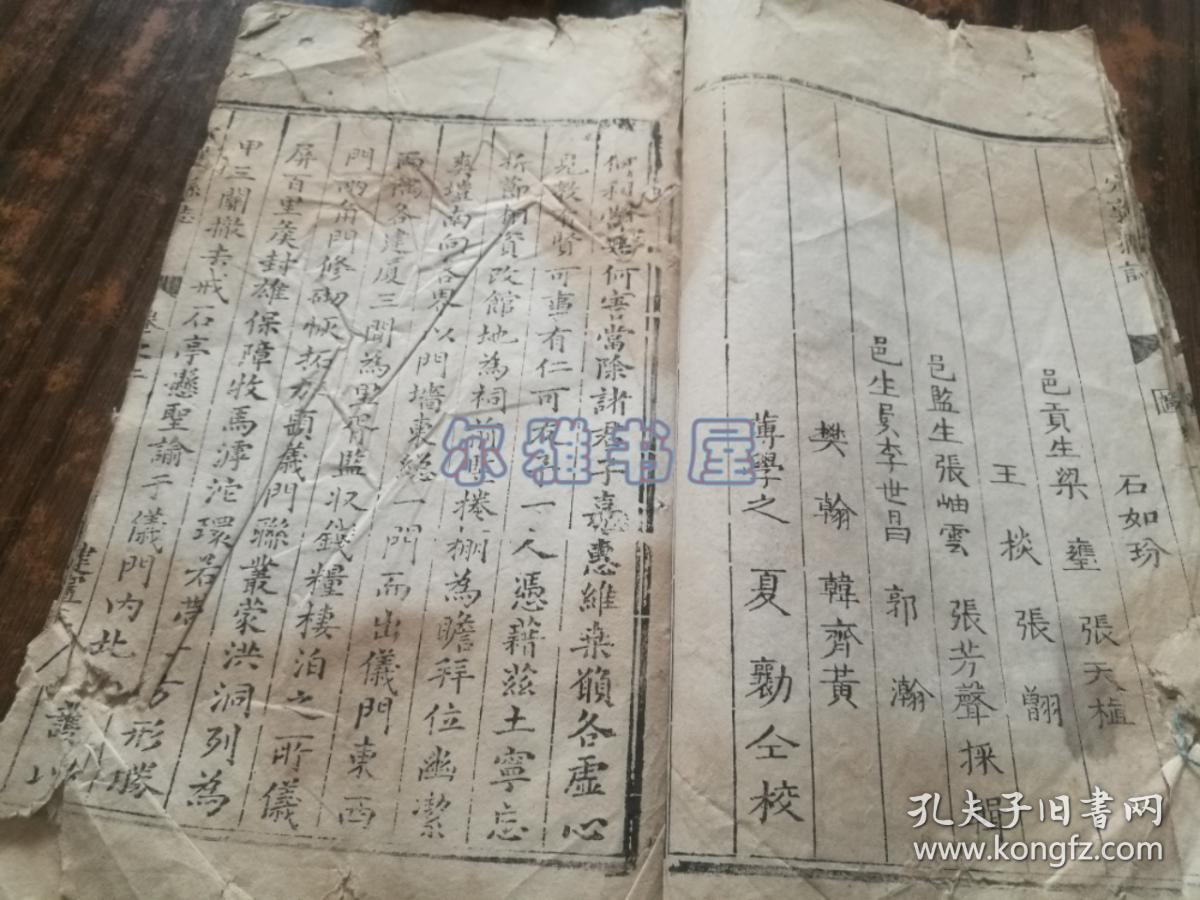 石如玢
邑貢生梁 壅 張天植
王 棪 張 翿
邑監生張岫雲 張芳聲採輯
邑生員李世昌 郭 瀚
樊 翰 韓齊黃
薄學之 夏 勷仝校
何利 何害當除諸君子嘉惠維桑願各虛心
見教有賢可事有仁可友 一人憑藉茲土寧忘
折節捐資改館地為祠前 捲棚為瞻拜位幽潔
爽塏南向各界以門墻東總一門而出儀門東西
兩 各建廈三間為 監収錢糧棲泊之所儀
門兩角門修砌恢拓 儀門聯叢蒙洪洞列為
屏百里羡封雄保障牧馬滹沱環若帶
甲三關撤去戒石亭懸聖諭于儀門內北 形勝
志
卷之二
尔雅书屋
孔夫子旧书网
www.kongfz.com